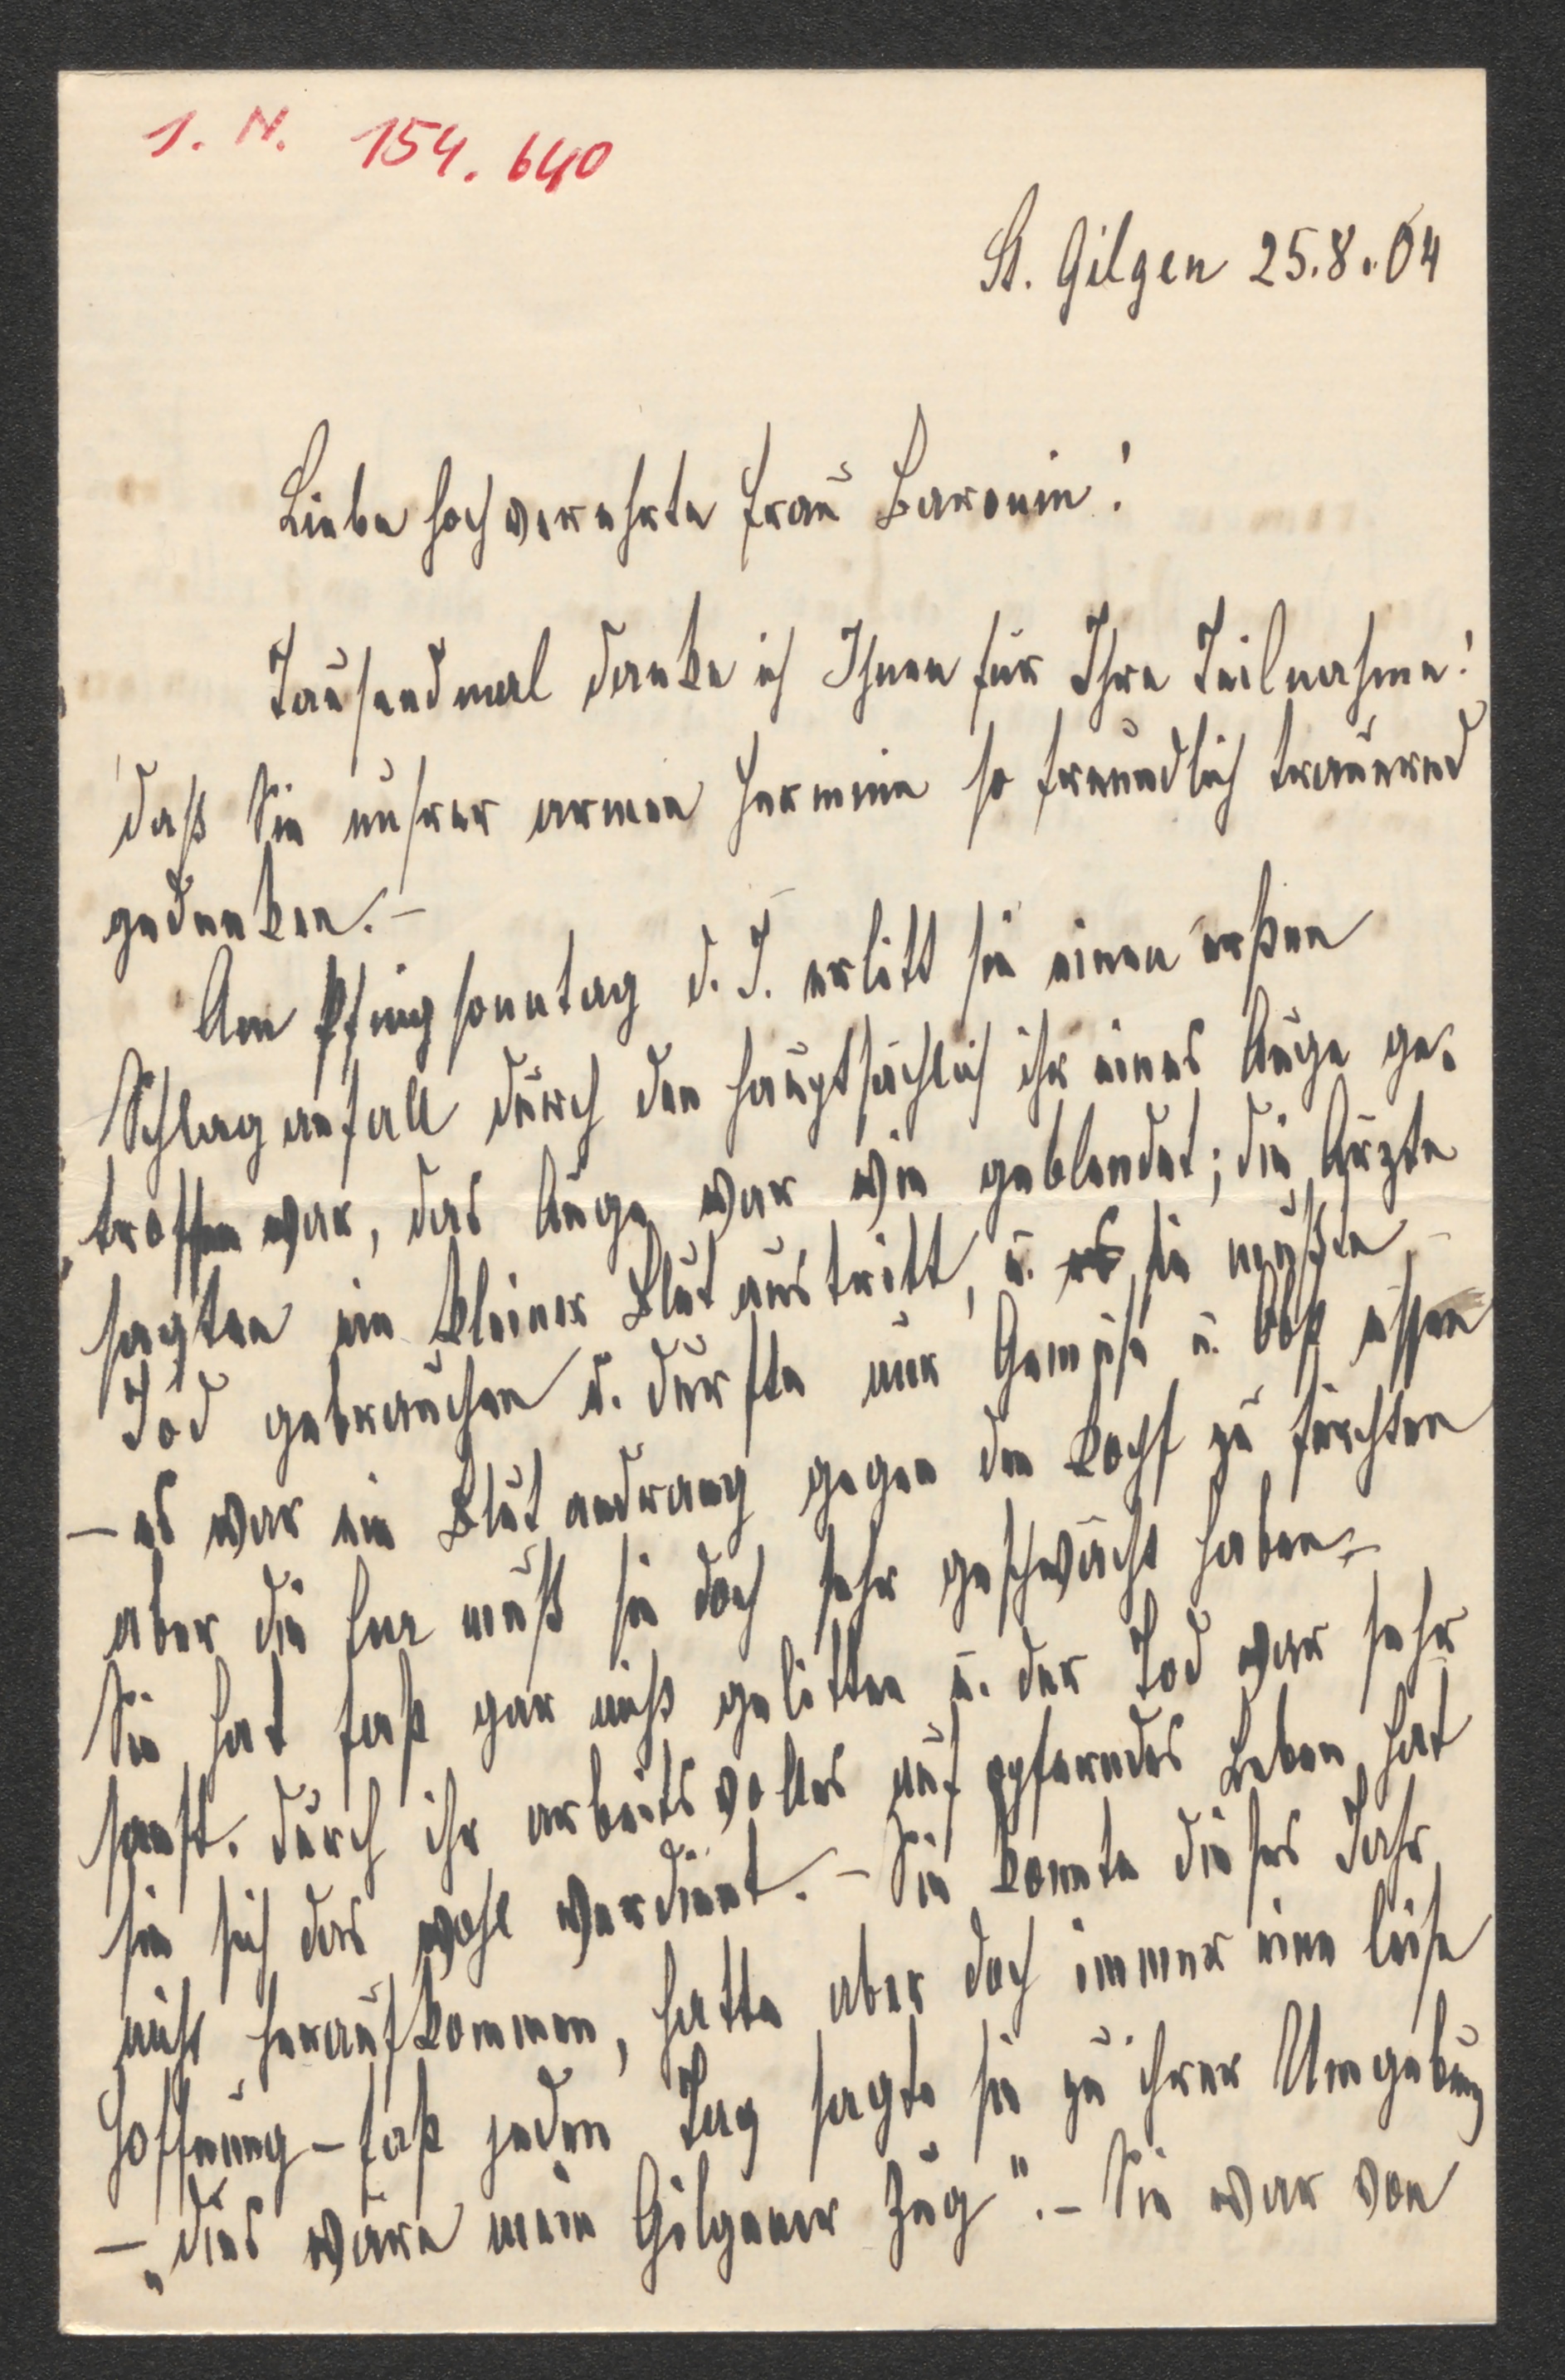 I. N. 154.640
St. Gilgen 25.8.04
Liebe hochverehrte Frau Baronin!
Tausendmal danke ich Ihnen für Ihre Teilnahme!
daß Sie unsrer armen Hermine so freundlich trauernd
gedenken.–
Am Pfingsonntag d. J. erlitt sie einen ersten
Schlaganfall durch den hauptsächlich ihr eines Auge ge-
troffen war, das Auge war wie geblendet; die Ärzte
sagten ein kleiner Blutaustritt, u. es sie mußte –
Jod gebrauchen u. durfte nur Gemüse u. Obst essen
– es war ein Blutandrang gegen den Kopf zu fürchten
aber die Cur muß sie doch sehr geschwächt haben –
Sie hat fast gar nicht gelitten u. der Tod war sehr
sanft. Durch ihr arbeitsvolles aufopferndes Leben hat
sie sich das wohl verdient. – Sie konnte dieses Jahr
nicht heraufkommen, hatte aber doch immer eine leise
Hoffnung – fast jeden Tag sagte sie zu ihrer Umgebung
– „dies wäre mein Gilgener Zug". – Sie war von